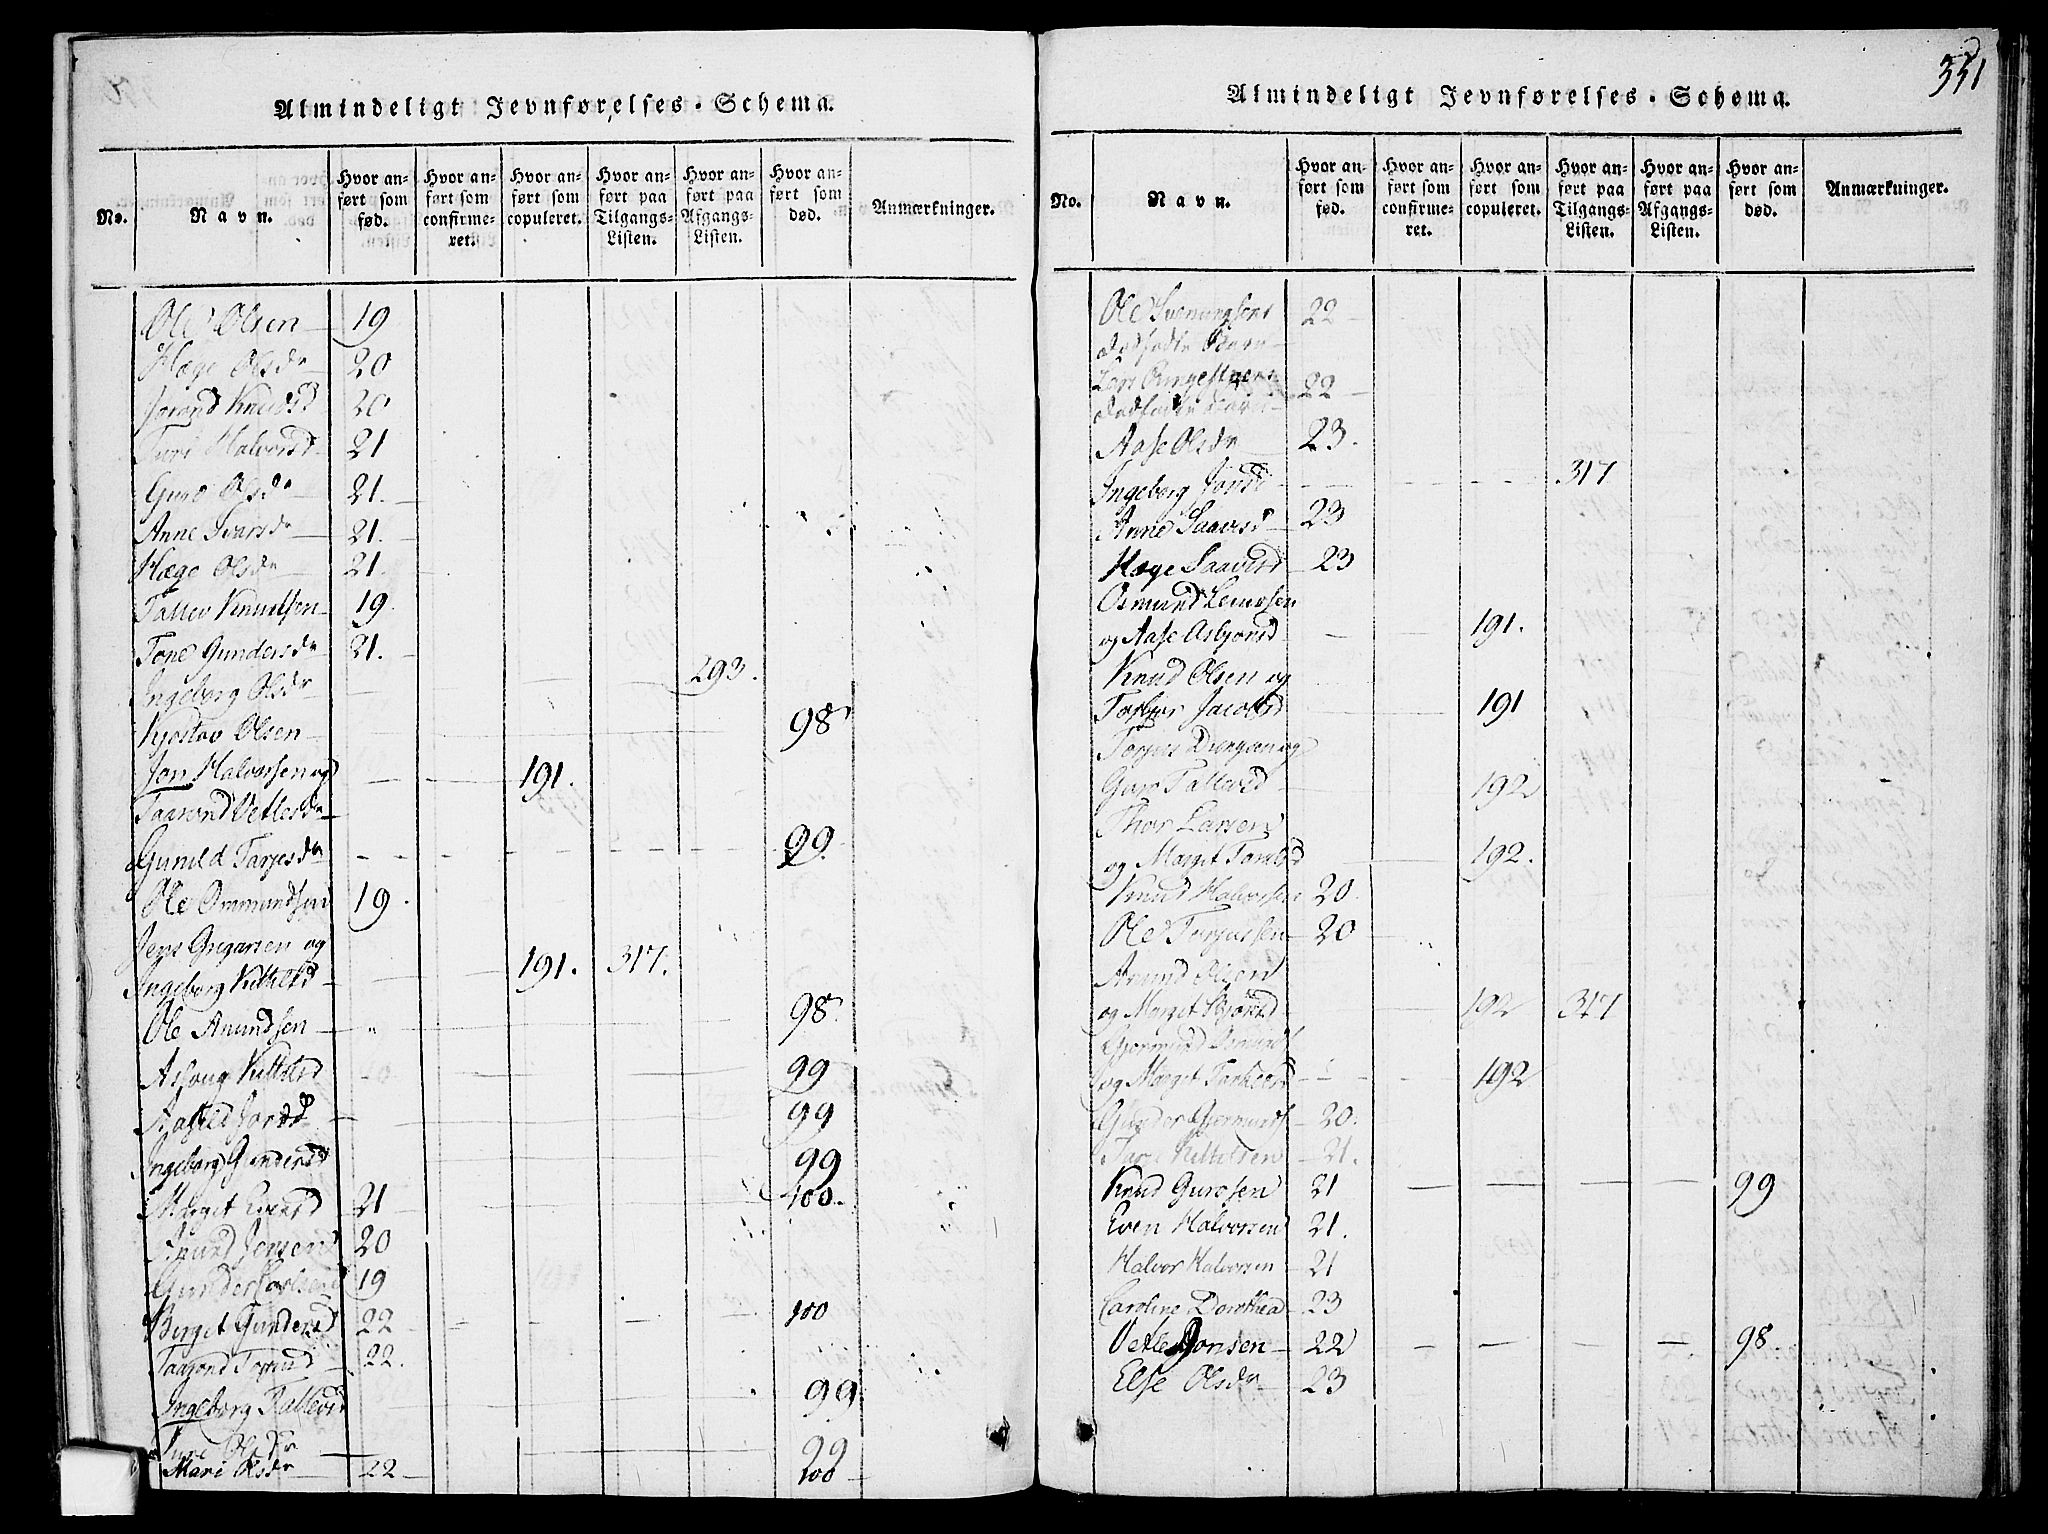 Almindeligt Jevnførelses-Schema.
No. Navn. Hvor anført som fød. Hvor anført som confirmeret. Hvor anført som copuleret. Hvor anført paa Tilgangs-Listen. Hvor anført paa Afgangs-Listen. Hvor anført som død. Anmærkninger.
Ole Olsen 19
Hæge Olsdr 20
Jorond Knudsd 20
Turi Halvorsd 21
Guro Olsdr 21.
Anne Ivarsdr 21.
Hæge Olsdr 21.
Tallev Knudsen 19.
Tone Gundersdr 21.
Ingeborg Olsdr 293.
Kjøstov Olsen 98
Jon Halvorsen og 191.
Taarond Vetlesdr
Gunild Tarjesdr 99
Ole Ommundsen 19.
Jens Gregarsen og
Ingeborg Kittilsd 191. 317.
Ole Anundsen 98.
Aslaug Kittilsd 99
Aasild 99
Ingeborg Gundersd 99
Marget Evensd 21 100.
Anund Jensen 20
Gunder 19
Berget Gundersd 22 100
Taarond 22.
Ingeborg Tallevsd 99
Turi Olsdr 99
Mari Olsdr 22 100
351
Almindeligt Jevnførelses-Schema.
No. Navn. Hvor anført som fød. Hvor anført som confirmeret. Hvor anført som copuleret. Hvor anført paa Tilgangs-Listen. Hvor anført paa Afgangs-Listen. Hvor anført som død. Anmærkninger.
Ole Svenungsens 22
dødfødte Barn
Lars 22
dødfødte Barn
Aase Olsdr 23.
Ingeborg Jonsd 317
Anne Saavesd 23
Hæge Saavesd 23
Osmund
og Aase Asbjønsd 191.
Knud Olsen og
Torbjør Jacobsd 191
Torjus Drengsen og
Guro Tallevsd 192
Thor Larsen
og Marget 192.
Knud Halvorsen 20
Ole Torjussen 20
Anund Olsen
og Marget 192 317
Gjermund
og Marget 192
Gunder Gjermunds 20.
Tarje Kittilsen 21.
Knud Gurosen 21 99
Even Halvorsen 21.
Halvor Halvorsen 21
Caroline Dorothea 23
Vetle Jonsen 22 98
Else Olsdr 23